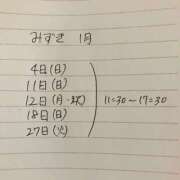 みずき 1月
4日(日)
11日(日)
12日(月・祝)
18日(日)
27日(火)
11:30〜17:30